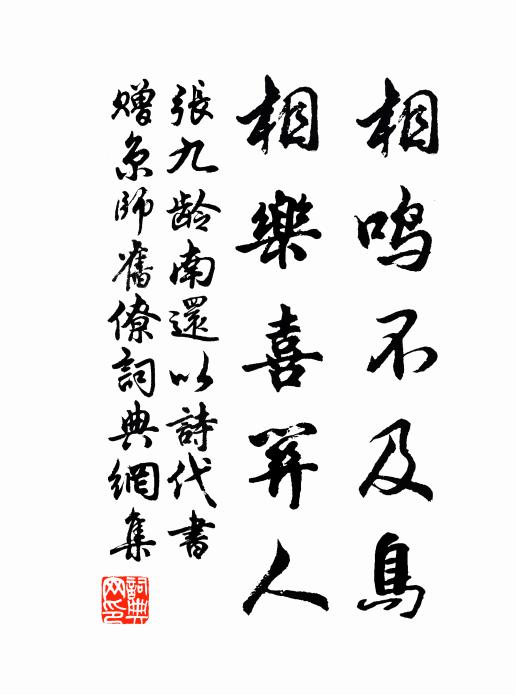 相鸣不及鳥
相樂喜関人
張九龄南還以詩代書
赠京师舊僚詞典網集
詞典网印